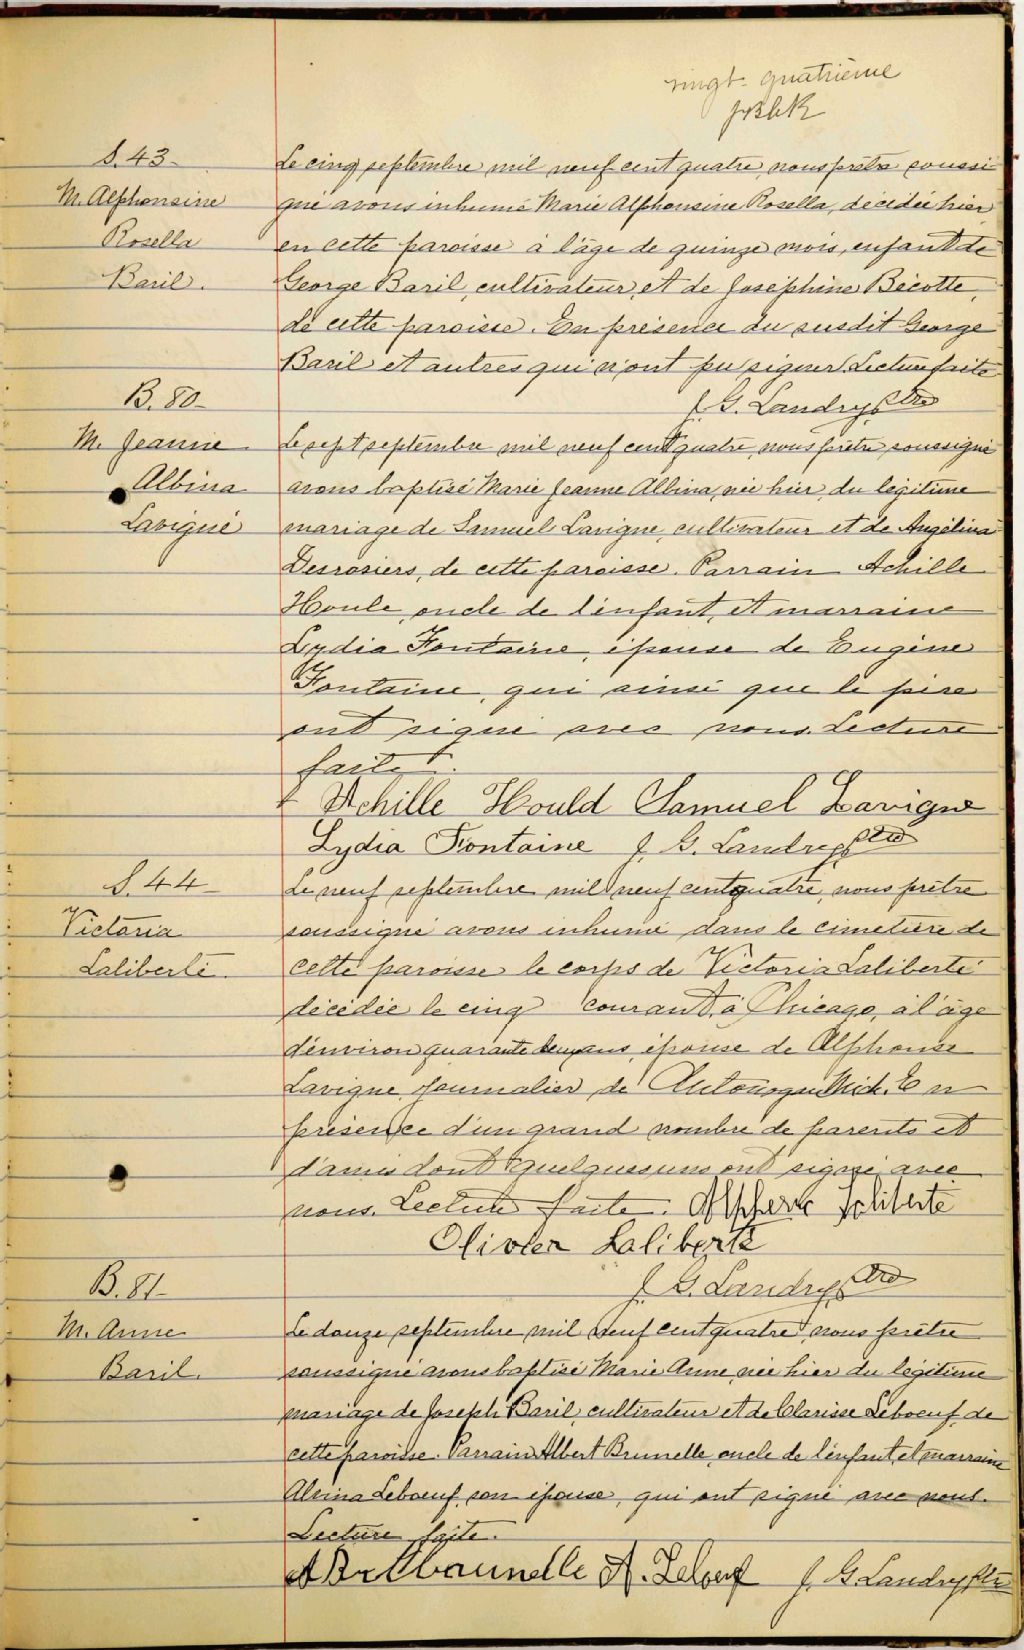 vingt-quatrième
S. 43-
M. Alphonsine
Rosella
Baril.
Le cinq septembre mil neuf cent quatre, nous prêtre soussi-
gné avons inhumé Marie Alphonsine Rosella, décédée hier
en cette paroisse à l'âge de quinze mois, enfant de
George Baril, cultivateur, et de Joséphine Bécotte,
de cette paroisse. En présence du susdit George
Baril et autres qui n'ont pu signer. Lecture faite
J. G. Landry, ptre
B. 80-
M. Jeanne
Albina
Lavigne
Le sept septembre mil neuf cent quatre, nous prêtre soussigné
avons baptisé Marie Jeanne Albina, née hier, du légitime
mariage de Samuel Lavigne, cultivateur et de Angélina
Desrosiers, de cette paroisse. Parrain Achille
Houle, oncle de l'enfant, et marraine
Lydia Fontaine, épouse de Eugène
Fontaine, qui ainsi que le père
ont signé avec nous. Lecture
faite.
Achille Hould Samuel Lavigne
Lydia Fontaine J. G. Landry, ptre
S. 44-
Victoria
Laliberté.
Le neuf septembre mil neuf cent quatre, nous prêtre
soussigné avons inhumé dans le cimetière de
cette paroisse le corps de Victoria Laliberté
décédée le cinq courant, à Chicago, à l'âge
d'environ quarante deux ans, épouse de Alphonse
Lavigne, journalier de Mich. En
présence d'un grand nombre de parents et
d'amis dont quelques uns ont signé avec
nous. Lecture faite. Laliberté
Olivier Laliberté
J. G. Landry, ptre
B. 81-
M. Anne
Baril.
Le douze septembre mil neuf cent quatre, nous prêtre
soussigné avons baptisé Marie Anne, née hier du légitime
mariage de Joseph Baril, cultivateur et de Clarisse Leboeuf, de
cette paroisse. Parrain Albert Brunelle, oncle de l'enfant, et marraine
Alvina Leboeuf, son épouse, qui ont signé avec nous.
Lecture faite.
A. Leboeuf J. G. Landry, ptre